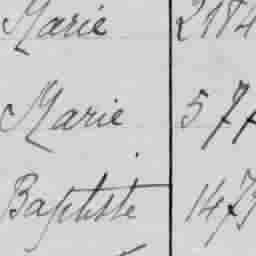 Marie 2184
Marie 577
Baptiste 1475